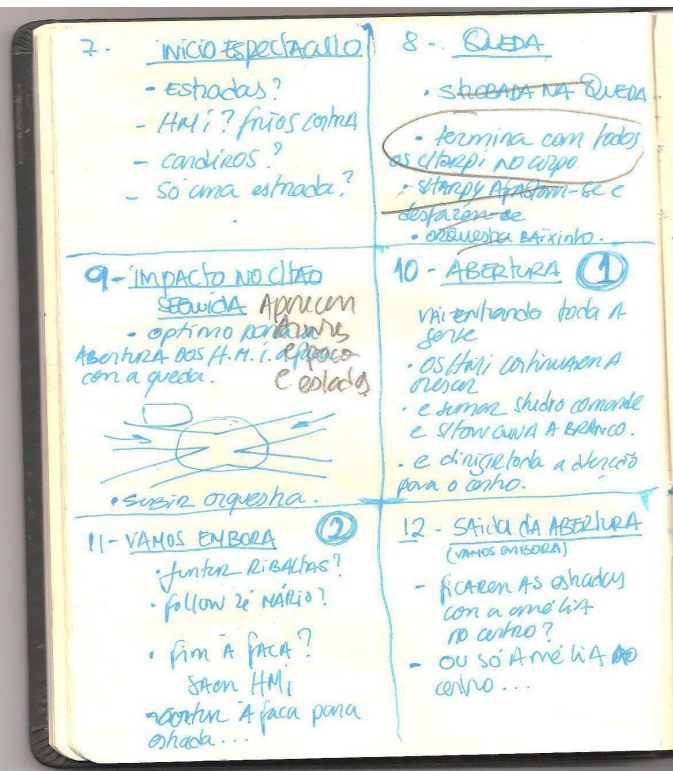 7. INICIO ESPECTACULO
- Estradas?
- HMi? frios contra
- candieiros?
- Só uma estrada?
8 - QUEDA
• STROBADA NA QUEDA
• termina com todos
os SHARPI NO corpo
• SHARPY Afastam-se e
desfazem-se
• orquestra BAixinho.
9 - IMPACTO NO CHÃO
SEGUIDA APArecem
• optimo para a
ABertura DOS H.M.i.
com a queda.
e estadas
• SUBIR orquestra.
10 - ABERTURA 1
VAi entrando toda A
gente
• OS HMi continuaREM A
crescer
• e somar strobo comande
e SHOWGUN A BRANCO.
• e dirigir toda a atenção
para o centro.
11 - VAMOS EMBORA 2
• juntar RiBALtAS?
• follow Zé MÁRIO?
• fim À fACA?
SAem HMi
À faca para
estrada...
12 - SAída dA ABERtURA
(VAMOS EMBORA)
- ficAREM AS estradas
com a AméliA
no centro?
- ou só AméliA AO
centro...